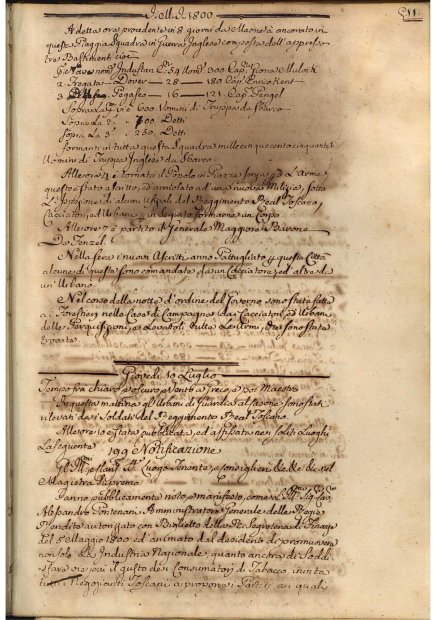 J.M.J. 1800
11.
A detta ora procedente in 8 giorni da Maone è ancorata in
questa Piaggia Squadra in Guerra Inglese composta dell' appresso
tre Bastimenti cioè
Industan 54 300 Cap.
2 Fregata Dover — 28 — 180 Cap.
3 Pegaseo — 16 — 121 Cap. Pengel
Sopra la p.ª n'è 600 Uomini di Truppa da Sbarco
Sopra La 2ª 700 Detti
Sopra La 3ª 250 Detti
formanti in tutta questa Squadra mille cinquecento cinquanta
Uomini di Truppa Inglese da Sbarco
Alle ore 4 è tornato il Popolo in Piazza senza Armi
questo è stato ascritto, ed arrolato ad una nuova Milizia, sotto
L'Ispezione di alcuni Ufiziali del Reggimento Real Toscano,
Cacciatori, ed Urbani in seguito formarne un Corpo
Alle ore 7 è partito il Generale Maggiore Barone
De Fenzel
Nella sera i nuovi Ascritti anno Pattugliato questa Città
alcune di queste sono comandate da un Cacciatore, ed altre da
un' Urbano.
Nel corso della notte d'ordine del Governo sono state fatte
nelle Case di Campagna dai Cacciatori, ed Urbani
delle Perquisizioni, e Levatoli tutte Le Armi, che sono state
trovate.
Giovedì 10 Luglio
Tempo fra chiaro, e scuro, e Vento a Greco, e poi Maestro
In questa mattina gl'Urbani di Guardia al Pavone sono stati
rilevati dai Soldati del Reggimento Real Toscano.
Alle ore 10 è stata pubblicata, ed affissata nei soliti Luoghi
La seguente
199 Notificazione
Gl' Ill.mi Luogo Tenente, e Consiglieri &c. &c. &c. del
Magistra Supremo
Fanno pubblicamente noto, e manifesto, come
Alessandro Pontenani Amministratore Generale delle Regie
Rendite autorizzato con Biglietto della R. Segreteria di Finanze
del 5 Maggio 1800 ed animato dal desiderio di promuovere
non solo L'Industria Nazionale, quanto ancora di Soddi
sfare vie più il gusto dei Consumatori di Tabacco, invita
tutti i Negozianti Toscani a proporre i Partiti coi quali